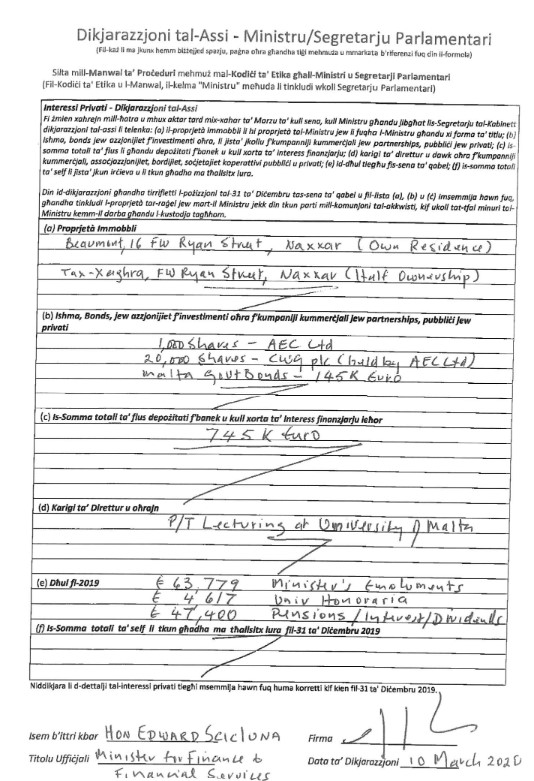 Dikjarazzjoni tal-Assi - Ministru/Segretarju Parlamentari
(Fil-każ li ma jkunx hemm biżżejjed spazju, paġna oħra għandha tiġi mehmuża u mmarkata b'riferenzi fuq din il-formola)
Silta mill-Manwal ta' Proċeduri mehmuż mal-Kodiċi ta' Etika għall-Ministri u Segretarji Parlamentari
(Fil-Kodiċi ta' Etika u l-Manwal, il-kelma "Ministru" meħuda li tinkludi wkoll Segretarju Parlamentari)
Interessi Privati - Dikjarazzjoni tal-Assi
Fi żmien xahrejn mill-ħatra u mhux aktar tard mix-xahar ta' Marzu ta' kull sena, kull Ministru għandu jibgħat lis-Segretarju tal-Kabinett
dikjarazzjoni tal-assi li telenka: (a) il-proprjetà immobbli li hi proprjetà tal-Ministru jew li fuqha l-Ministru għandu xi forma ta' titlu; (b)
ishma, bonds jew azzjonijiet f'investimenti oħra, li jista' jkollu f'kumpaniji kummerċjali jew partnerships, pubbliċi jew privati; (c) is-
somma totali ta' flus li għandu depożitati f'banek u kull xorta ta' interess finanzjarju; (d) karigi ta' direttur u dawk oħra f'kumpaniji
kummerċjali, assoċjazzjonijiet, bordijiet, soċjetajiet koperattivi pubbliċi u privati; (e) id-dħul tiegħu fis-sena ta' qabel; (f) is-somma totali
ta' self li jista' jkun irċieva u li tkun għadha ma tħallsitx lura.
Din id-dikjarazzjoni għandha tirrifletti l-pożizzjoni tal-31 ta' Diċembru tas-sena ta' qabel u fil-lista (a), (b) u (c) imsemmija hawn fuq,
għandha tinkludi l-proprjetà tar-raġel jew mart il-Ministru jekk din tkun parti mill-komunjoni tal-akkwisti, kif ukoll tat-tfal minuri tal-
Ministru kemm-il darba għandu l-kustodja tagħhom.
(a) Proprjetà Immobbli
Beaumont, 16 FW Ryan Street, Naxxar (Own Residence)
Tax-Xagħra, FW Ryan Street, Naxxar (Half Ownership)
(b) Ishma, Bonds, jew azzjonijiet f'investimenti oħra f'kumpaniji kummerċjali jew partnerships, pubbliċi jew
privati
1,000 Shares - AEC Ltd
20,000 Shares - CWG plc (held by AEC Ltd)
Malta Govt Bonds - 145K Euro
(c) Is-Somma totali ta' flus depożitati f'banek u kull xorta ta' interess finanzjarju ieħor
745 K Euro
(d) Karigi ta' Direttur u oħrajn
P/T Lecturing at University of Malta
(e) Dħul fl-2019
€ 63,779 Minister's Emoluments
€ 4,617 Univ Honoraria
€ 47,400 Pensions/Interest/Dividends
(f) Is-Somma totali ta' self li tkun għadha ma tħallsitx lura fil-31 ta' Diċembru 2019
Niddikjara li d-dettalji tal-interessi privati tiegħi msemmija hawn fuq huma korretti kif kien fil-31 ta' Diċembru 2019.
Isem b'ittri kbar HON EDWARD SCICLUNA Firma
Titolu Uffiċjali Minister for Finance & Data ta' Dikjarazzjoni 10 March 2020
Financial Services